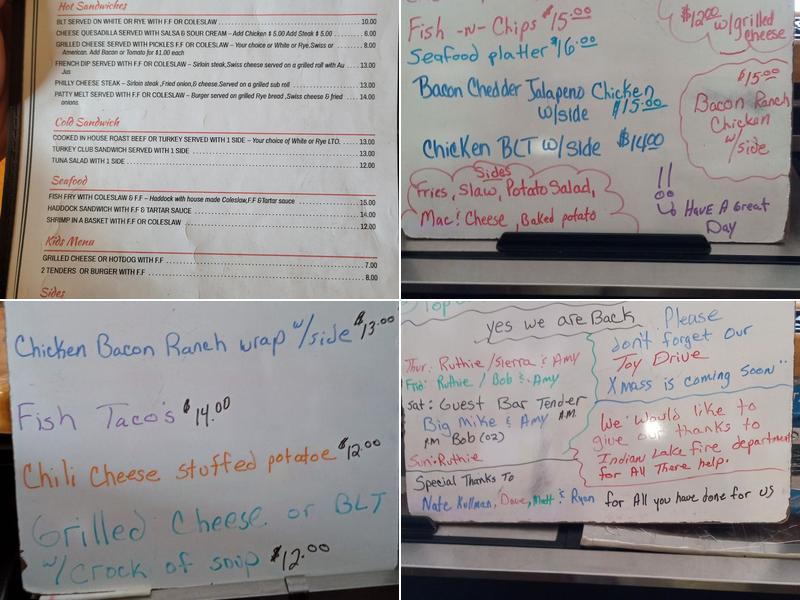 Hot Sandwiches
BLT SERVED ON WHITE OR RYE WITH F.F OR COLESLAW 10.00
CHEESE QUESADILLA SERVED WITH SALSA & SOUR CREAM – Add Chicken $ 5.00 Add Steak $ 5.00 6.00
GRILLED CHEESE SERVED WITH PICKLES F.F OR COLESLAW – Your choice or White or Rye,Swiss or 8.00
American. Add Bacon or Tomato for $1.00 each
FRENCH DIP SERVED WITH F.F OR COLESLAW – Sirloin steak,Swiss cheese served on a grilled roll with Au 13.00
Jus
PHILLY CHEESE STEAK – Sirloin steak ,Fried onion,& cheese.Served on a grilled sub roll 13.00
PATTY MELT SERVED WITH F.F OR COLESLAW – Burger served on grilled Rye bread ,Swiss cheese & fried 14.00
onions.
Cold Sandwich
COOKED IN HOUSE ROAST BEEF OR TURKEY SERVED WITH 1 SIDE – Your choice of White or Rye LTO. 13.00
TURKEY CLUB SANDWICH SERVED WITH 1 SIDE 13.00
TUNA SALAD WITH 1 SIDE 12.00
Seafood
FISH FRY WITH COLESLAW & F.F – Haddock with house made Coleslaw,F.F &Tartar sauce 15.00
HADDOCK SANDWICH WITH F.F & TARTAR SAUCE 14.00
SHRIMP IN A BASKET WITH F.F OR COLESLAW 12.00
Kids Menu
GRILLED CHEESE OR HOTDOG WITH F.F 7.00
2 TENDERS OR BURGER WITH F.F 8.00
Sides
Fish -n- Chips $15.00
Seafood platter $16.00
Bacon Chedder Jalapeno Chicken
w/side $15.00
Chicken BLT w/side $14.00
$12.00
w/grilled
cheese
$15.00
Bacon Ranch
Chicken
w/
side
Sides
Fries, Slaw, Potato Salad,
Mac! Cheese, Baked potato
!!
HAVE A Great
Day
Chicken Bacon Ranch wrap w/side $13.00
Fish Taco's $14.00
Chili Cheese stuffed potatoe $12.00
Grilled Cheese or BLT
w/Crock of soup $12.00
yes we are Back
Thur: Ruthie/Sierra & Amy
Fri: Ruthie / Bob & Amy
Sat: Guest Bar Tender
Big Mike & Amy A.M.
PM Bob (02)
Sun: Ruthie
Please
don't forget our
Toy Drive
Xmass is coming soon
We Would like to
give our thanks to
Indian Lake fire department
for All There help.
Special Thanks To
Nate Kullman, Dave, Matt & Ryan for All you have done for us